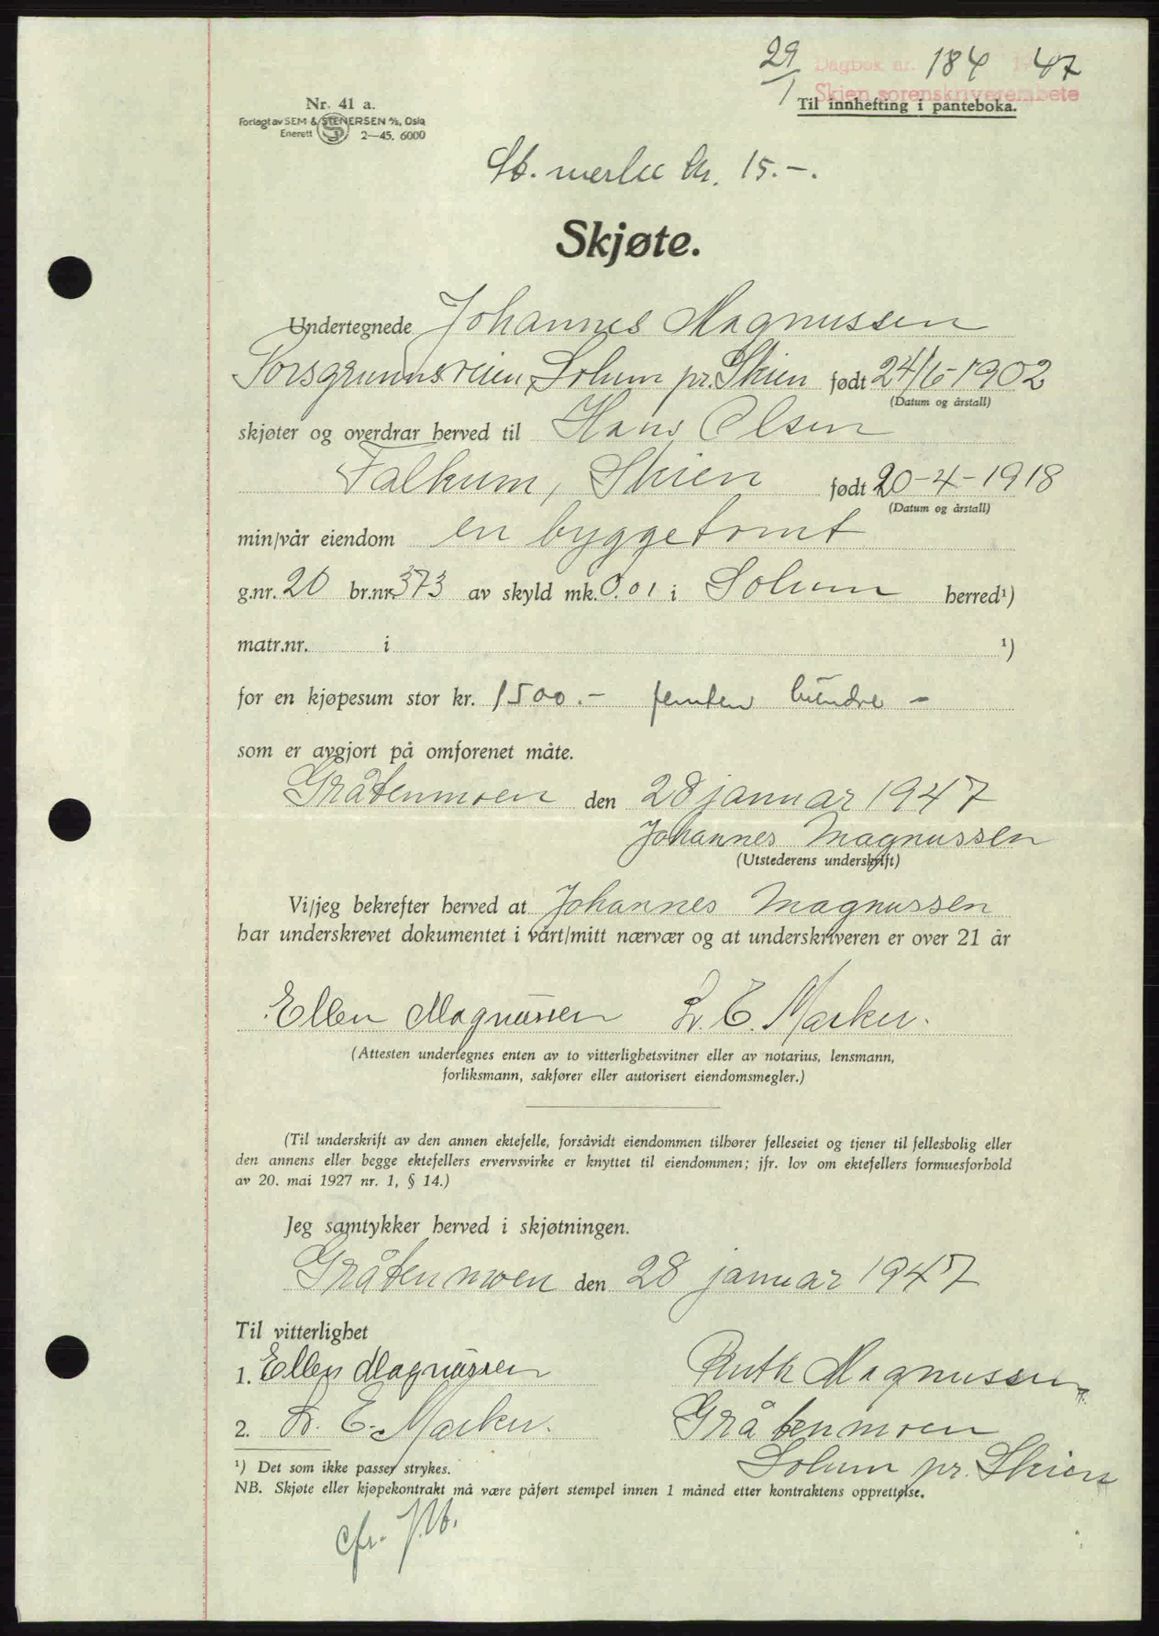 29/1 Dagbok nr. 184 1947
Skien sorenskriverembete
Til innhefting i panteboka.
Nr. 41 a.
Forlagt av SEM & STENERSEN A/S, Oslo
Enerett 2—45. 6000
St. merke kr. 15.-.
Skjøte.
Undertegnede Johannes Magnussen
Porsgrunnsveien, Solum pr. Skien født 24/6-1902
(Datum og årstall)
skjøter og overdrar herved til Hans Olsen
Falkum, Skien født 20-4-1918
(Datum og årstall)
min/vår eiendom en byggetomt
g.nr. 20 br.nr. 373 av skyld mk. 0.01 i Solum herred¹)
matr.nr. i ¹)
for en kjøpesum stor kr. 1500.- femten hundre -
som er avgjort på omforenet måte.
Gråtenmoen den 28 januar 1947
Johannes Magnussen
(Utstederens underskrift)
Vi/jeg bekrefter herved at Johannes Magnussen
har underskrevet dokumentet i vårt/mitt nærvær og at underskriveren er over 21 år
Ellen Magnussen E. Marker.
(Attesten undertegnes enten av to vitterlighetsvitner eller av notarius, lensmann,
forliksmann, sakfører eller autorisert eiendomsmegler.)
(Til underskrift av den annen ektefelle, forsåvidt eiendommen tilhører felleseiet og tjener til fellesbolig eller
den annens eller begge ektefellers ervervsvirke er knyttet til eiendommen; jfr. lov om ektefellers formuesforhold
av 20. mai 1927 nr. 1, § 14.)
Jeg samtykker herved i skjøtningen.
Gråtenmoen den 28 januar 1947
Til vitterlighet
1. Ellen Magnussen Ruth Magnussen
2. E. Marker. Gråtenmoen
Solum pr. Skien
¹) Det som ikke passer strykes.
NB. Skjøte eller kjøpekontrakt må være påført stempel innen 1 måned etter kontraktens opprettelse.
cfr.